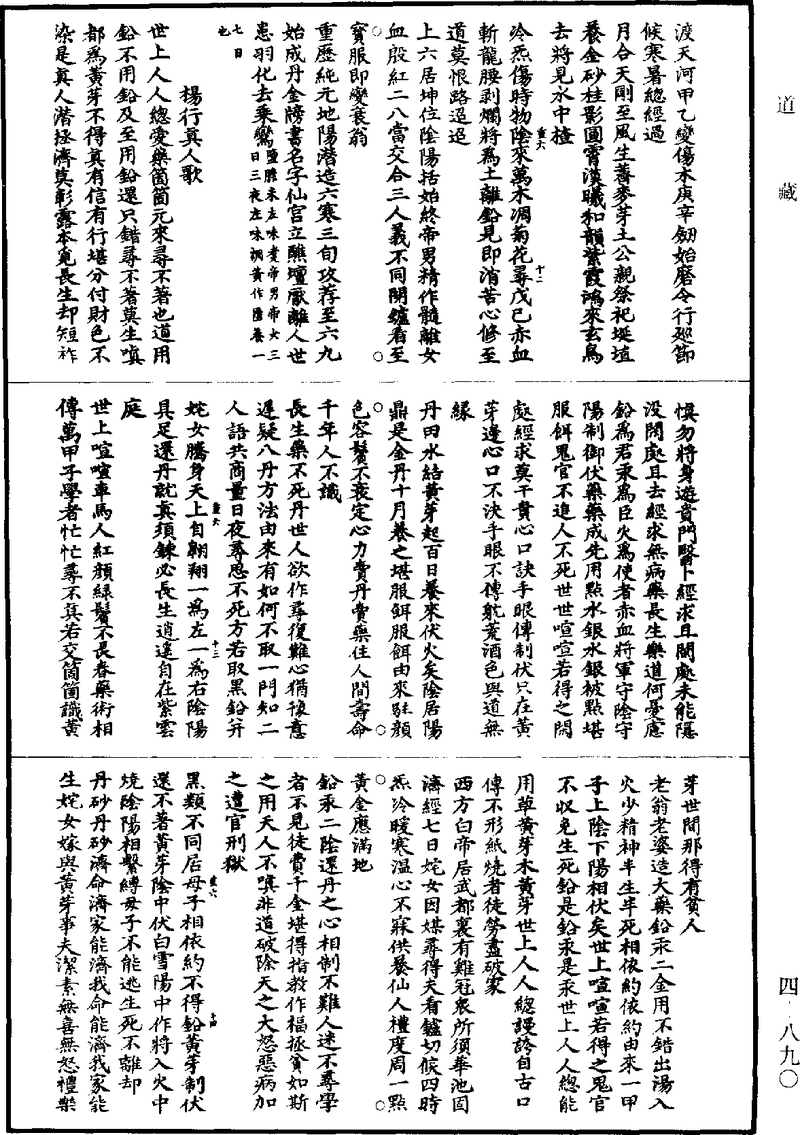 道藏
渡天河甲乙變傷木庚辛劒始磨令行廵節
候寒暑總經過
月合天剛至風生蕎麥芽土公親祭祀埏埴
養金砂桂影圓霄漢曦和韻紫霞鴻來玄鳥
去將見水中楂
冷炁傷時物陰來萬木凋菊花尋戊己赤血
斬龍腰剥爛將爲土離鉛見即消苦心修至
道莫恨路迢迢
上六居坤位陰陽括始終帝男精作髓離女
血殷紅二八當交合三人義不同開鑪看至
寳服即變衰翁
重歷純元地陽潜造六寒三旬攻荐至六九
始成丹金牓書名字仙宫立醮壇厭離人世
患羽化去乗鸞
七日也
楊行真人歌
世上人人總愛藥箇箇元來尋不著也道用
鉛不用鉛及至用鉛還只錯尋不著莫生嗔
都爲黄芽不得真有信有行堪分付財色不
染是真人潜拯濟莫彰露本覓長生却短祚
慎勿將身遊貴門醫卜經求且閑處未能隱
没閙處且去經求無病藥長生樂道何憂應
鉛爲君汞爲臣火爲使者赤血將軍守陰守
陽制御伏藥藥成先用點水銀水銀被點堪
服餌鬼官不追人不死世世喧喧若得之閙
處經求莫干貴心口訣手眼傳制伏只在黄
芽邊心口不決手眼不傳躭荒酒色與道無
緣
丹田水結黄芽起百日養來伏火矣陰居陽
鼎是金丹十月養之堪服餌服餌由來駐顔
色容鬢不衰定心力費丹費藥住人間壽命
千年人不識
長生藥不死丹世人欲作尋復難心猶豫意
遲疑八丹方法由來有如何不取一門知二
人語共商量日夜尋思不死方若取黑鉛并
姹女騰身天上自翱翔一爲左一爲右陰陽
具足還丹就真須鍊必長生逍遥自在紫雲
庭
世上喧喧車馬人紅顔緑鬢不長春藥術相
傳萬甲子學者忙忙尋不真若交箇箇識黄
芽世間那得有貧人
老翁老婆造大藥鉛汞二金用不錯出湯入
火少精神半生半死相依約依約由來一甲
子上陰下陽相伏矣世上喧喧若得之鬼官
不収免生死鉛是鉛汞是汞世上人人總能
用草黄芽木黄芽世上人人總謾誇自古口
傳不形紙燒者徒勞盡破家
西方白帝居武都裏有雞冠衆所須華池固
濟經七日姹女因媒尋得夫看鑪切候四時
炁冷暖寒温心不寐供養仙人禮度周一點
黄金應滿地
鉛汞二陰還丹之心相制不難人迷不尋學
者不見徒費千金堪得指教作福拯貧如斯
之用天人不嗔非道破除天之大怒惡病加
之遭官刑獄
黑類不同居母子相依約不得鉛黄芽制伏
還不著黄芽陰中伏白雪陽中作將入火中
燒陰陽相繫縛母子不能逃生死不離却
丹砂丹砂濟命濟家能濟我命能濟我家能
生姹女嫁與黄芽事夫潔素無喜無怒禮樂
四·八九〇